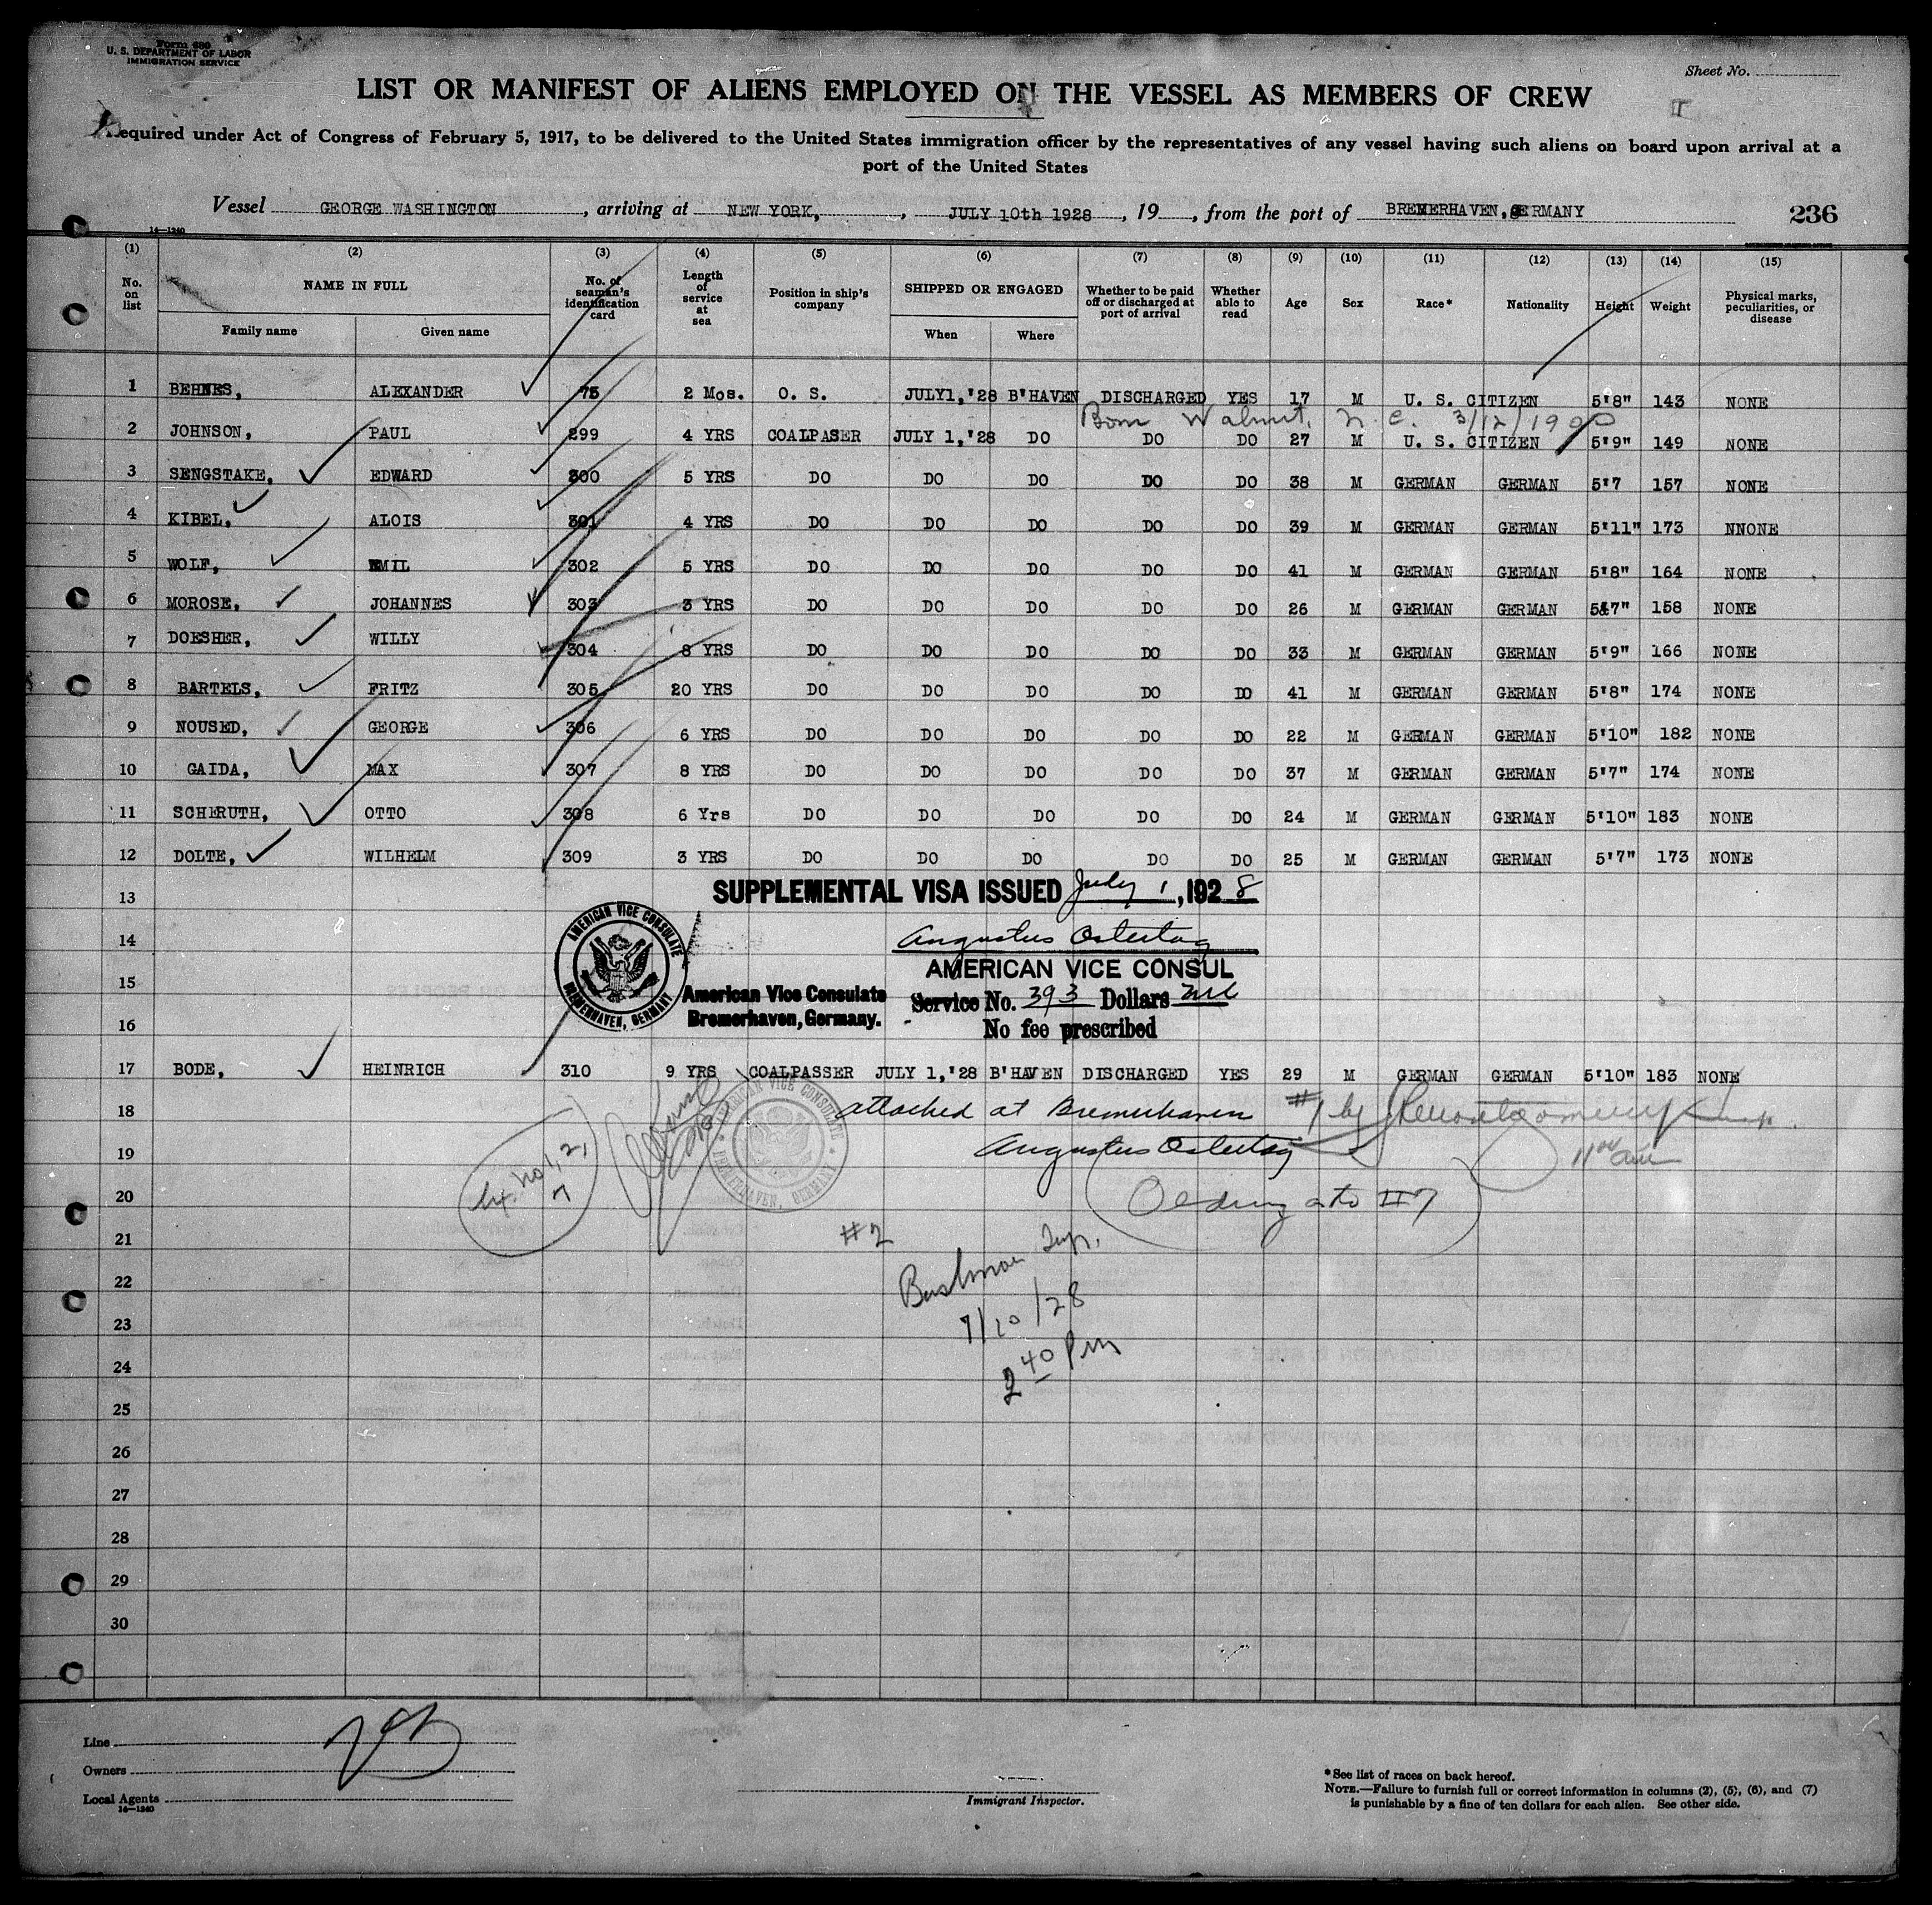 Form 680
U. S. DEPARTMENT OF LABOR
IMMIGRATION SERVICE
Sheet No.
LIST OR MANIFEST OF ALIENS EMPLOYED ON THE VESSEL AS MEMBERS OF CREW
II
Required under Act of Congress of February 5, 1917, to be delivered to the United States immigration officer by the representatives of any vessel having such aliens on board upon arrival at a
port of the United States
Vessel GEORGE WASHINGTON, arriving at NEW YORK, , JULY 10th 1928, 19 , from the port of BREMERHAVEN, GERMANY 236
14—1240
(1) (2) (3) (4) (5) (6) (7) (8) (9) (10) (11) (12) (13) (14) (15)
No. on list NAME IN FULL No. of seaman's identification card Length of service at sea Position in ship's company SHIPPED OR ENGAGED Whether to be paid off or discharged at port of arrival Whether able to read Age Sex Race* Nationality Height Weight Physical marks, peculiarities, or disease
Family name Given name When Where
1 BEHNES, ALEXANDER 75 2 Mos. O. S. JULY1,'28 B'HAVEN DISCHARGED YES 17 M U. S. CITIZEN 5'8" 143 NONE
Born Walnut, N. C. 3/12/1900
2 JOHNSON, PAUL 299 4 YRS COALPASER JULY 1,'28 DO DO DO 27 M U. S. CITIZEN 5'9" 149 NONE
3 SENGSTAKE, EDWARD 300 5 YRS DO DO DO DO DO 38 M GERMAN GERMAN 5'7 157 NONE
4 KIBEL, ALOIS 301 4 YRS DO DO DO DO DO 39 M GERMAN GERMAN 5'11" 173 NNONE
5 WOLF, EMIL 302 5 YRS DO DO DO DO DO 41 M GERMAN GERMAN 5'8" 164 NONE
6 MOROSE, JOHANNES 303 3 YRS DO DO DO DO DO 26 M GERMAN GERMAN 5'7" 158 NONE
7 DOESHER, WILLY 304 8 YRS DO DO DO DO DO 33 M GERMAN GERMAN 5'9" 166 NONE
8 BARTELS, FRITZ 305 20 YRS DO DO DO DO DO 41 M GERMAN GERMAN 5'8" 174 NONE
9 NOUSED, GEORGE 306 6 YRS DO DO DO DO DO 22 M GERMAN GERMAN 5'10" 182 NONE
10 GAIDA, MAX 307 8 YRS DO DO DO DO DO 37 M GERMAN GERMAN 5'7" 174 NONE
11 SCHERUTH, OTTO 308 6 Yrs DO DO DO DO DO 24 M GERMAN GERMAN 5'10" 183 NONE
12 DOLTE, WILHELM 309 3 YRS DO DO DO DO DO 25 M GERMAN GERMAN 5'7" 173 NONE
13 SUPPLEMENTAL VISA ISSUED July 1, 1928
14 Augustus Ostertag
AMERICAN VICE CONSUL
AMERICAN VICE CONSULATE BREMERHAVEN, GERMANY
15 American Vice Consulate Service No. 393 Dollars nil
16 Bremerhaven, Germany. No fee prescribed
17 BODE, HEINRICH 310 9 YRS COALPASSER JULY 1,'28 B'HAVEN DISCHARGED YES 29 M GERMAN GERMAN 5'10" 183 NONE
AMERICAN VICE CONSULATE BREMERHAVEN, GERMANY
18 attached at Bremerhaven #1 by
19 Augustus Ostertag 11 00 am
No 1, 2,
7
20
21 #2
22 Insp.
23 7/10/28
24 2 40 Pm
25
26
27
28
29
30
Line
Owners
Local Agents
14—1240
Immigrant Inspector.
*See list of races on back hereof.
NOTE.—Failure to furnish full or correct information in columns (2), (5), (6), and (7)
is punishable by a fine of ten dollars for each alien. See other side.